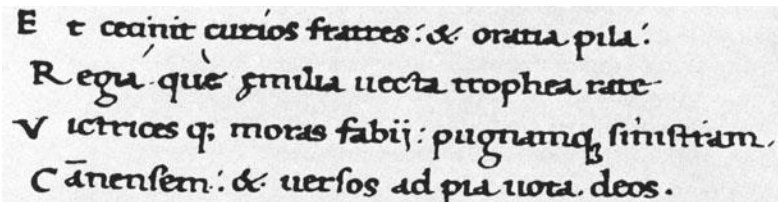 E t cecinit curios fratres: & oratia pila:
R egia que emilia uecta trophea rate
V ictrices q; moras fabij: pugnamq; sinistram.
C ānensem: & uersos ad pia uota. deos.